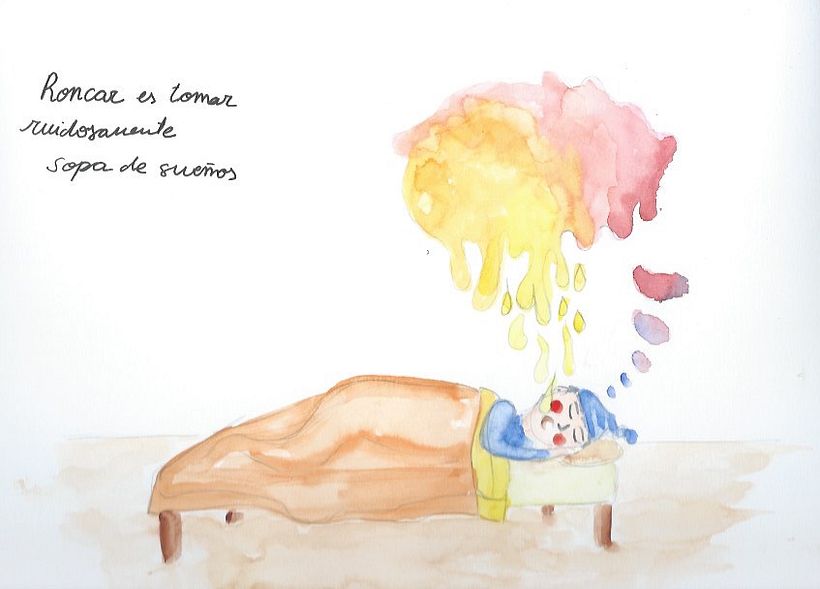 Roncar es tomar
ruidosamente
sopa de sueños